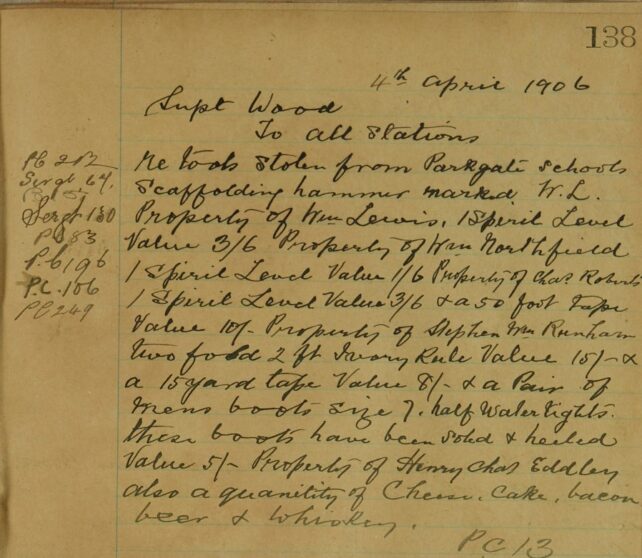 138
4th April 1906
Supt Wood
To all Stations
re tools Stolen from Parkgate schools
Scaffolding hammer marked W.L.
Property of Wm Lewis, 1 Spirit Level
Value 3/6 Property of Wm Northfield
1 Spirit Level Value 1/6 Property of Chas. Roberts
1 Spirit Level Value 3/6 & a 50 foot Tape
Value 10/- Property of Stephen Wm Runham
two fold 2 ft Ivory Rule Value 15/- &
a 15 yard tape Value 8/- & a Pair of
mens boots size 7. half Watertights.
these boots have been soled & heeled
Value 5/- Property of Henry Chas Eddley
also a quanitity of Cheese. Cake, bacon
beer & Whiskey.
P.C. 13
PC 212
Sergt. 64.
Sergt 130
PC 83
P.C. 196
P.C. 106
PC 249